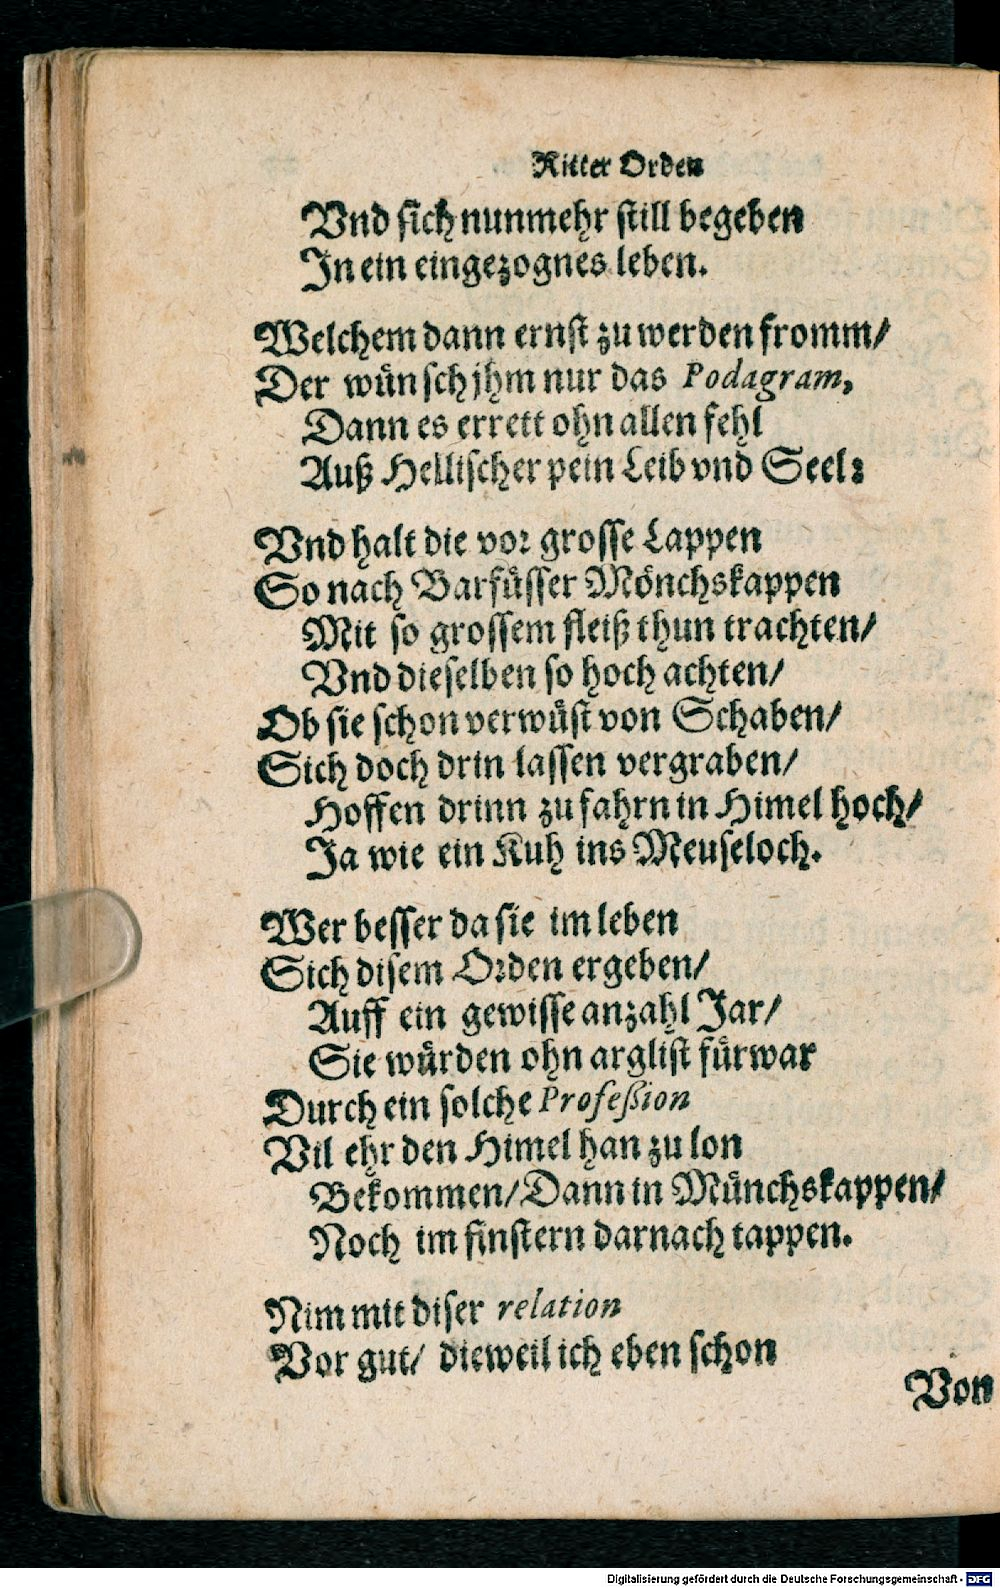 Ritter Orden
Vnd sich nunmehr still begeben
In ein eingezognes leben.
Welchem dann ernst zu werden fromm/
Der wünsch jhm nur das Podagram,
Dann es errett ohn allen fehl
Auß Hellischer pein Leib vnd Seel:
Vnd halt die vor grosse Lappen
So nach Barfüsser Mönchskappen
Mit so grossem fleiß thun trachten/
Vnd dieselben so hoch achten/
Ob sie schon verwüst von Schaben/
Sich doch drin lassen vergraben/
Hoffen drinn zu fahrn in Himel hoch/
Ja wie ein Kuh ins Meuseloch.
Wer besser da sie im leben
Sich disem Orden ergeben/
Auff ein gewisse anzahl Jar/
Sie würden ohn arglist fürwar
Durch ein solche Profeßion
Vil ehr den Himel han zu lon
Bekommen/ Dann in Münchskappen/
Noch im finstern darnach tappen.
Nim mit diser relation
Vor gut/ dieweil ich eben schon
Von
Digitalisierung gefördert durch die Deutsche Forschungsgemeinschaft - DFG